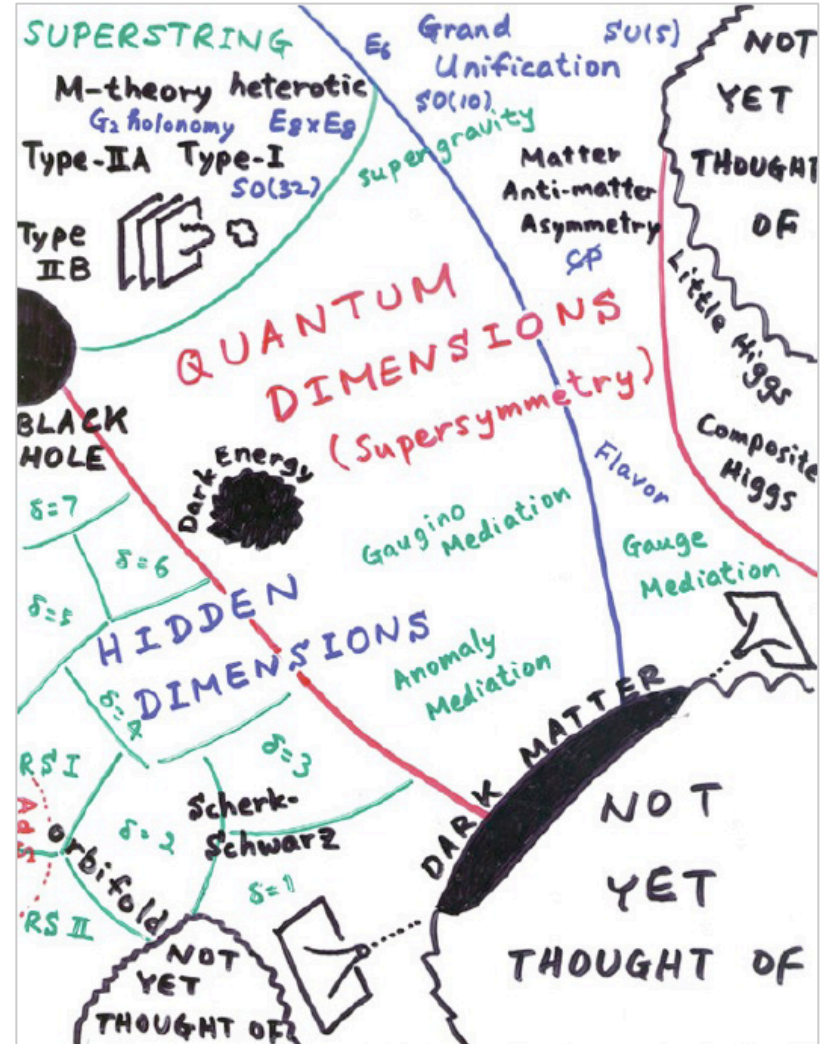 SUPERSTRING
M-theory heterotic
G₂ holonomy E8xE8
Type-IIA Type-I
SO(32)
Type
IIB
E₆ Grand
Unification
SU(5)
SO(10)
supergravity
Matter
Anti-matter
Asymmetry
CP
NOT
YET
THOUGHT
OF
Little Higgs
Composite
Higgs
QUANTUM
DIMENSIONS
(Supersymmetry)
BLACK
HOLE
Dark Energy
Flavor
Gaugino
Mediation
Gauge
Mediation
Anomaly
Mediation
δ=7
δ=6
δ=5
HIDDEN
DIMENSIONS
δ=4
δ=3
RS I
AdS
orbifold
δ=2
Scherk-
Schwarz
δ=1
RS II
DARK MATTER
NOT
YET
THOUGHT OF
NOT
YET
THOUGHT OF